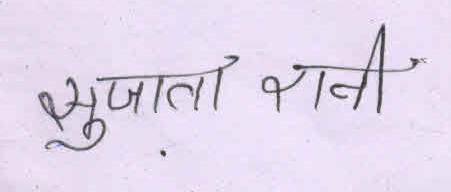 सुजाता रानी